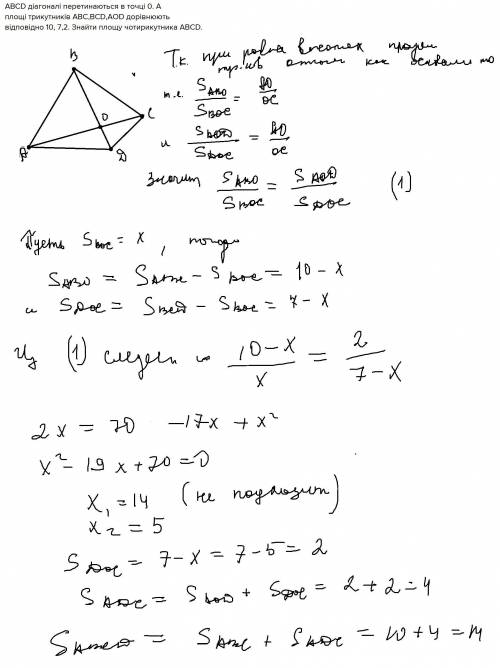 ABCD діагоналі перетинаються в точці 0. А
площі трикутників ABC,BCD,AOD дорівнюють
відповідно 10, 7,2. Знайти площу чотирикутника ABCD.
B
O
C
A
D
Т.к. при равна высотах
как
т.е. S_ABO / S_BOC = AO / OC
и S_AOD / S_DOC = AO / OC
Значит S_ABO / S_BOC = S_AOD / S_DOC (1)
Пусть S_BOC = x, тогда
S_ABO = S_ABC - S_BOC = 10 - x
и S_DOC = S_BCD - S_BOC = 7 - x
Из (1) следует 10 - x / x = 2 / 7 - x
2x = 70 - 17x + x²
x² - 19x + 70 = 0
x₁ = 14 (не подходит)
x₂ = 5
S_DOC = 7 - x = 7 - 5 = 2
S_ADC = S_AOD + S_DOC = 2 + 2 = 4
S_ABCD = S_ABC + S_ADC = 10 + 4 = 14